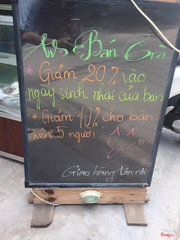 Bán
* Giảm 20% vào
ngày sinh nhật của bạn
* Giảm 10% cho bàn
trên 5 người
Giao hàng tận nơi